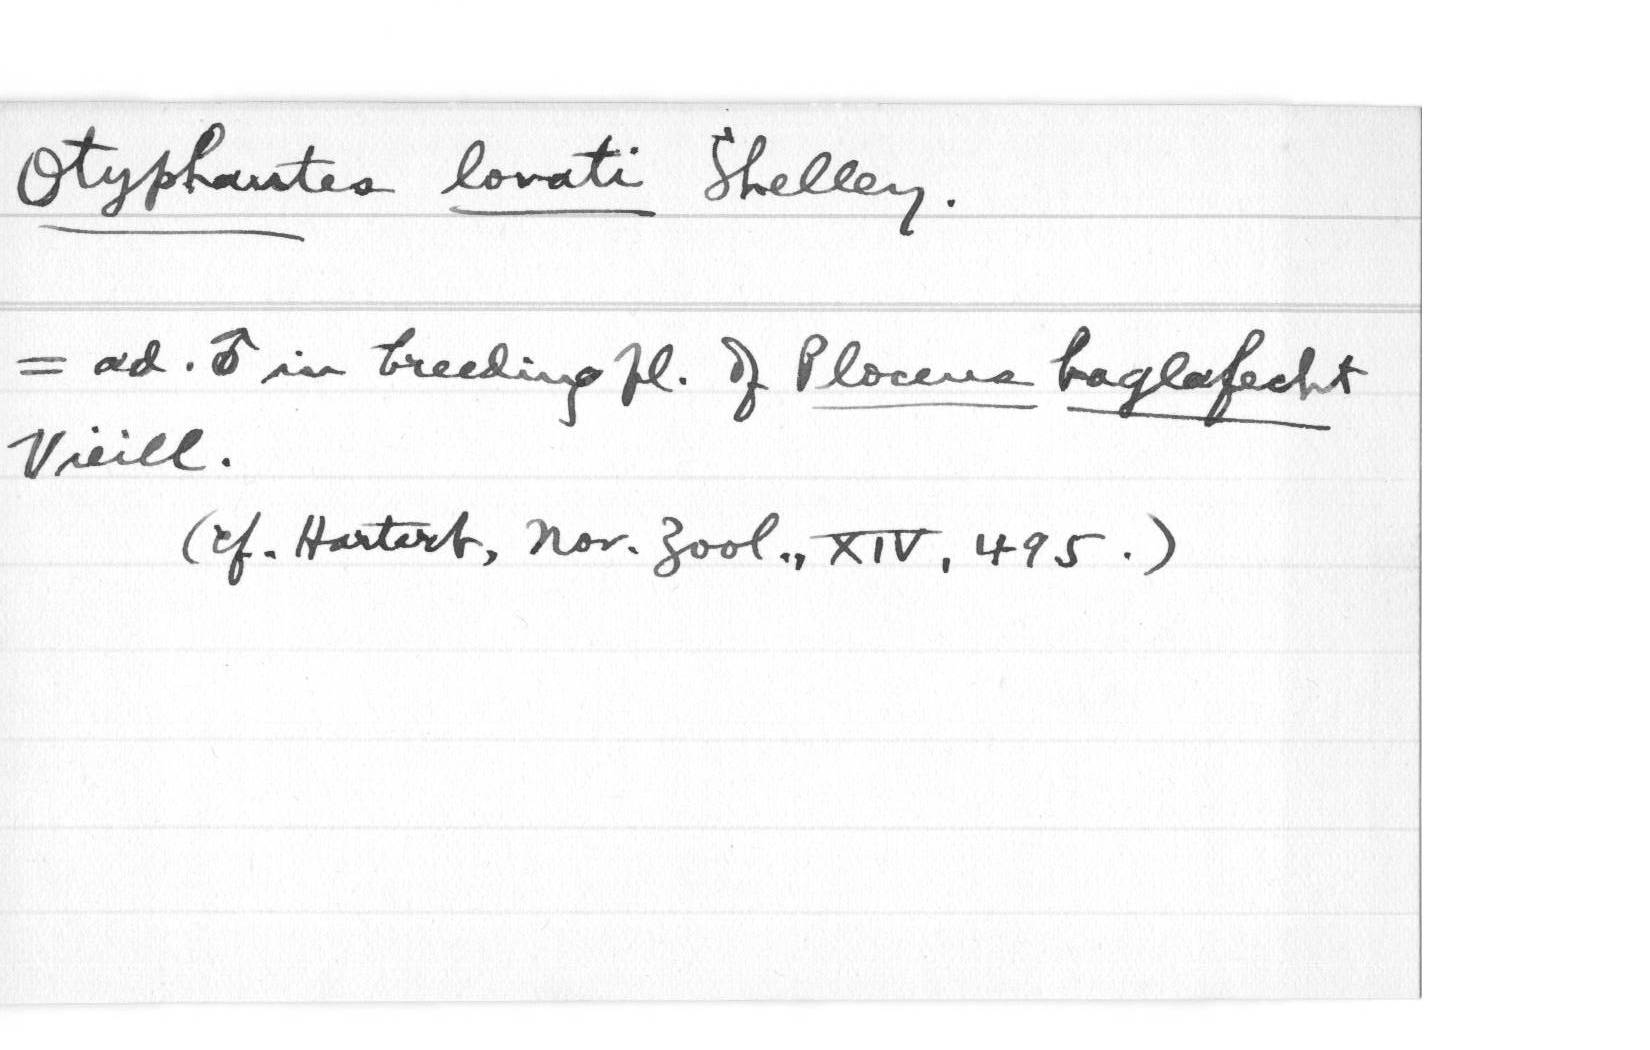 Otyphantes lovati Shelley.
= ad. ♂ in breeding pl. of Ploceus baglafecht
Vieill.
(cf. Hartert, Nov. Zool., XIV, 495.)